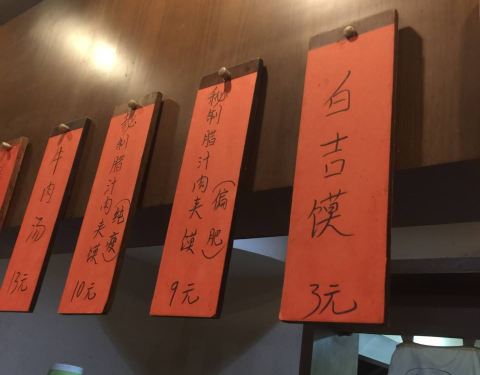 白吉馍
3元
秘制腊汁肉夹馍
(偏肥)
9元
秘制腊汁肉夹馍
(纯瘦)
10元
牛肉汤
13元